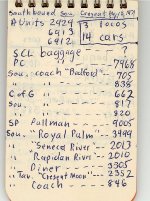 Southbound Sou. Crescent
A Units 2924 } 3 locos
6913
6912 14 cars
SCL baggage - - - ?
PC " - - - 7968
Sou. coach "Bedford" - - 705
" " - - 838
C of G " - - 662
Sou. " - - 817
" " - - 820
SP Pullman - - - 9005
Sou. "Royal Palm" - - 3499
" "Seneca River" - - 2013
" "Rapidan River" - 2010
" Diner - - - 3305
" Tav. "Crescent Moon" - - 2352
" Coach - - - 846